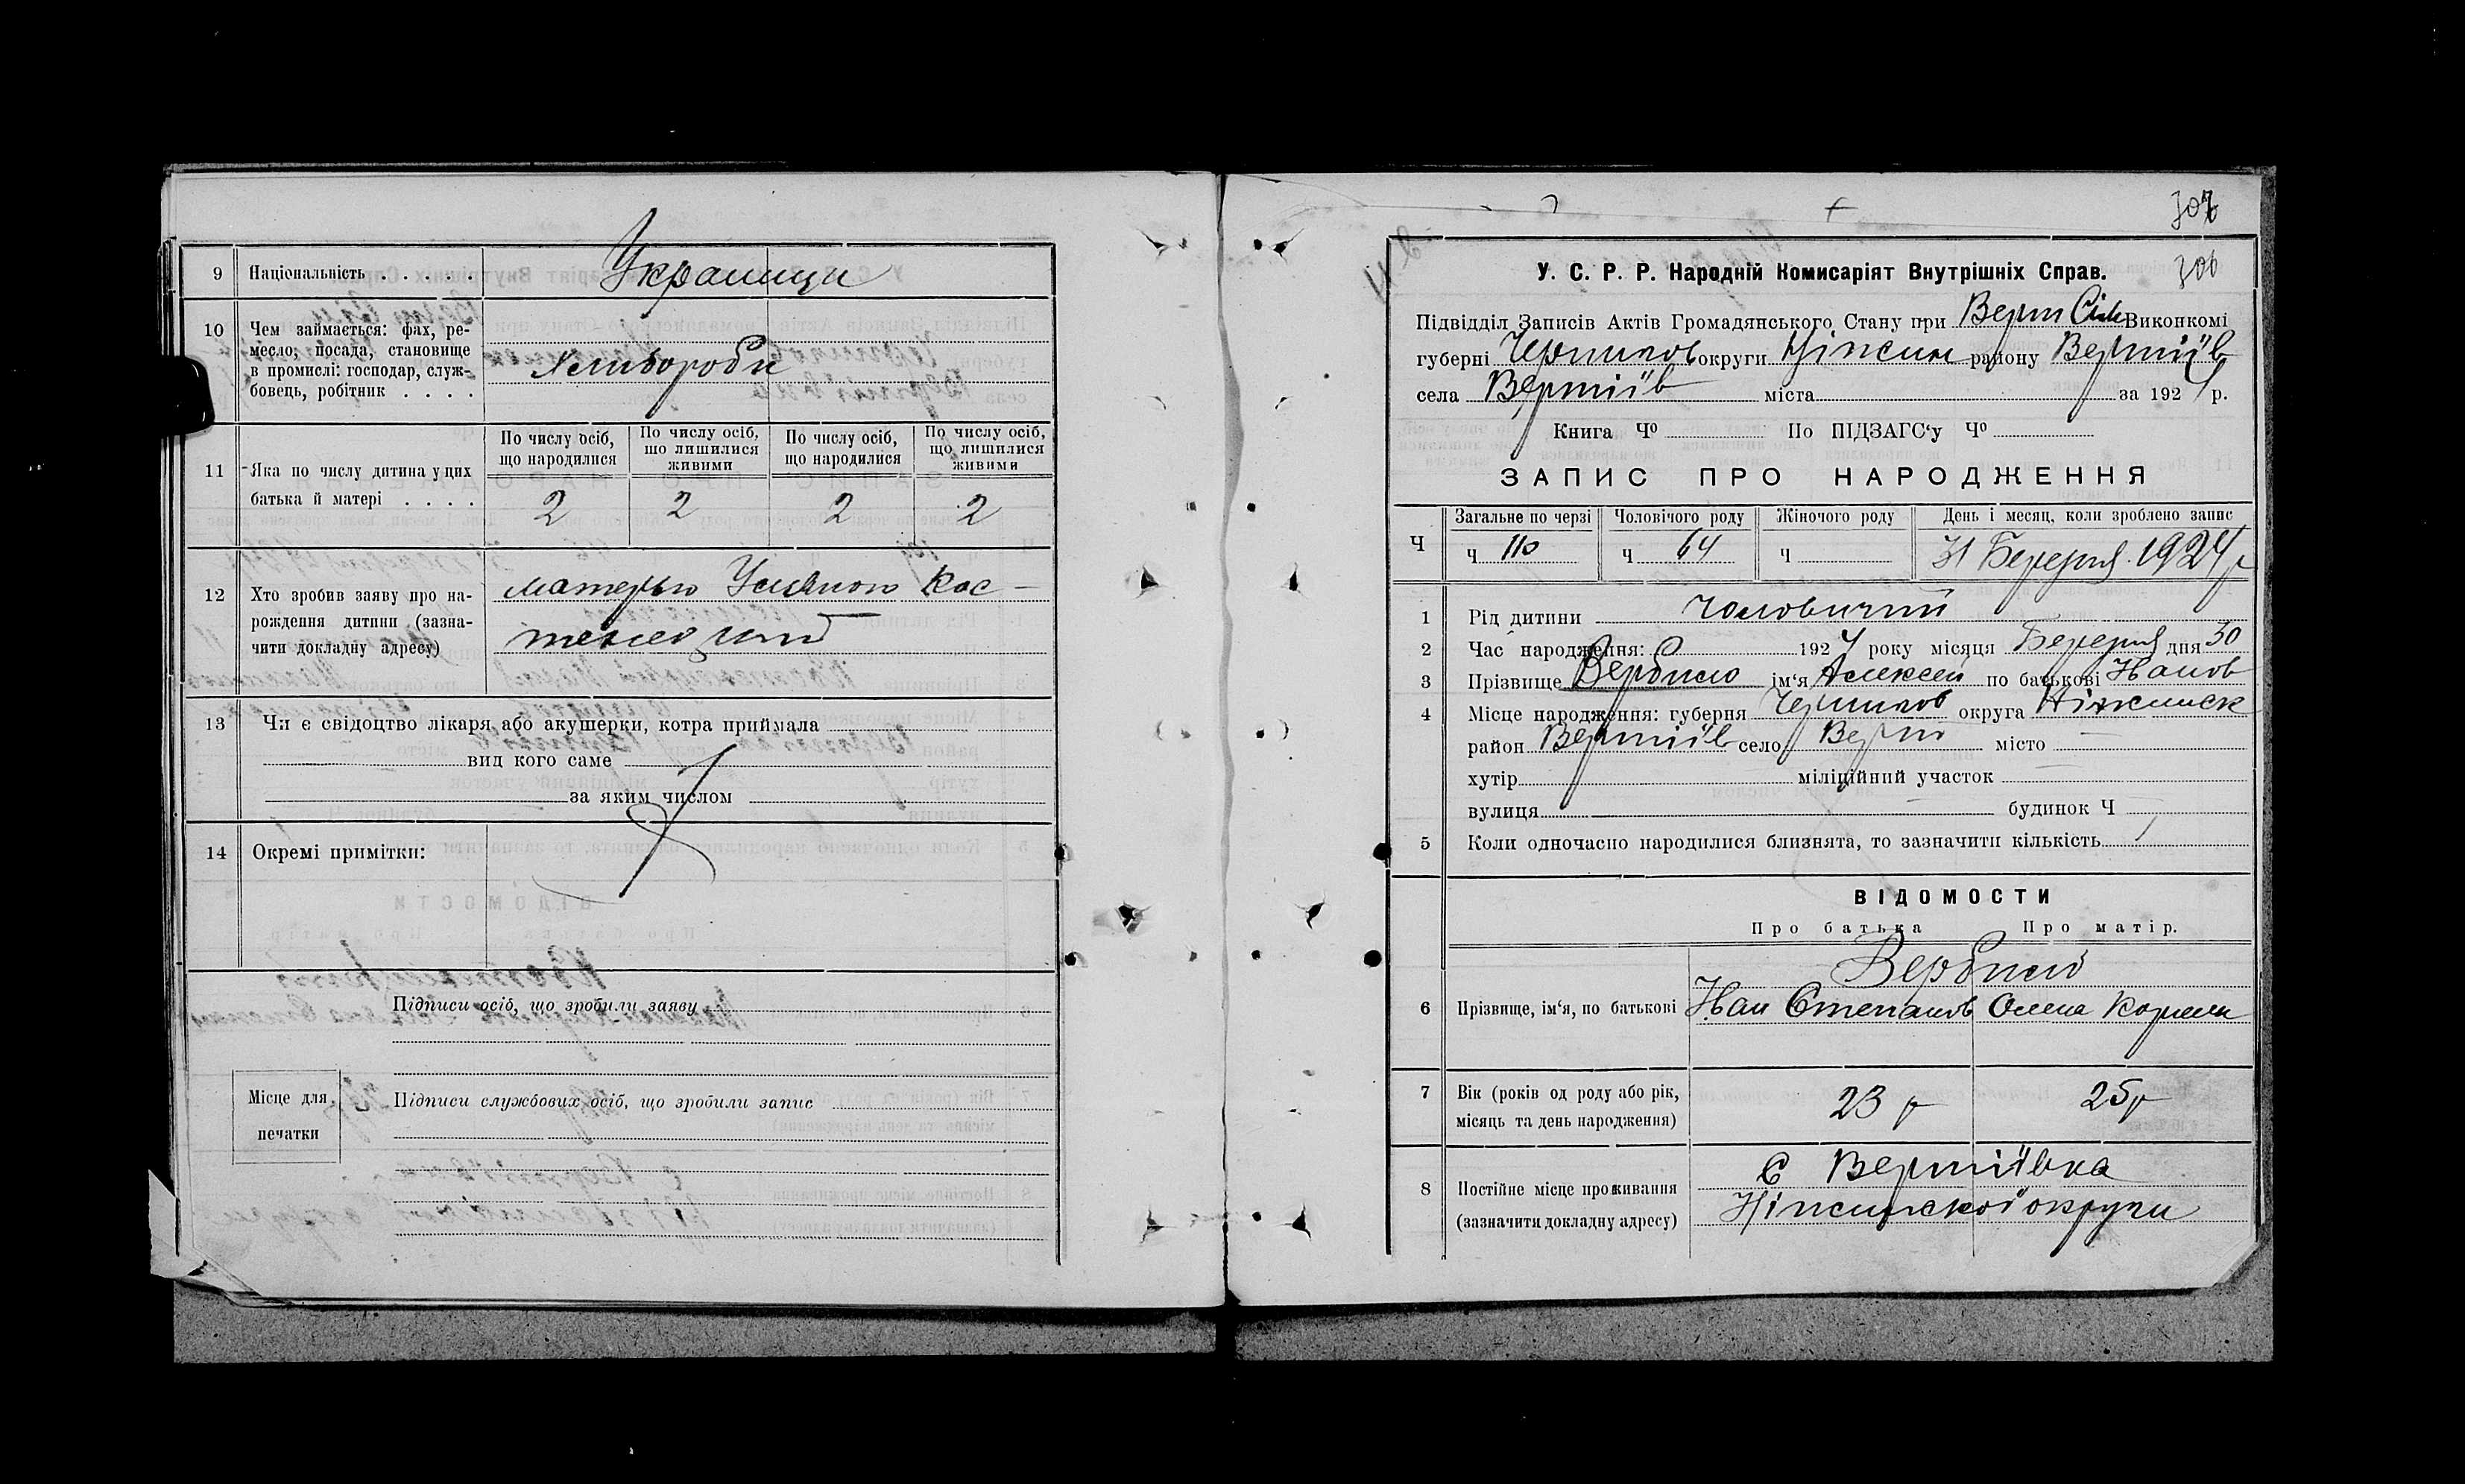 9 Національність . . . . .
Украинци
10 Чем займається: фах, ре-
месло, посада, становище
в промислі: господар, служ-
бовець, робітник . . . .
Хлибороби
11 Яка по числу дитина у цих
батька й матері . . . .
По числу осіб, що народилися
По числу осіб, що лишилися живими
По числу осіб, що народилися
По числу осіб, що лишилися живими
2 2 2 2
12 Хто зробив заяву про на-
рождення дитини (зазна-
чити докладну адресу)
матерью
13 Чи є свідоцтво лікаря або акушерки, котра приймала
вид кого саме
за яким числом
14 Окремі примітки:
Підписи осіб, що зробили заяву
Місце для
печатки
Підписи службових осіб, що зробили запис
307
306
У. С. Р. Р. Народній Комисаріят Внутрішніх Справ.
Підвідділ Записів Актів Громадянського Стану при Верт Сіль Виконкомі
губерні Чернигов округи Ніжин району Вертіїв
села Вертіїв міста за 1924 р.
Книга Ч⁰ По ПІДЗАГС'у Ч⁰
ЗАПИС ПРО НАРОДЖЕННЯ
Ч Загальне по черзі Чоловічого роду Жіночого роду День і месяц, коли зроблено запис
ч 110 ч 64 ч 31 Березня 1924 р
1 Рід дитини чоловичий
2 Час народження: 1924 року місяця Березня дня 30
3 Прізвище ім'я Алексей по батькові Иванов
4 Місце народження: губерня Чернигов округа Ніжинск
район Вертіїв село Верт місто
хутір міліційний участок
вулиця будинок Ч
5 Коли одночасно народилися близнята, то зазначити кількість
ВІДОМОСТИ
Про батька Про матір.
6 Прізвище, ім'я, по батькові Иван Степанов Олена
7 Вік (років од роду або рік,
місяць та день народження)
23 р 25 р
8 Постійне місце проживання
(зазначити докладну адресу)
с Вертіївка
Ніжинської округи